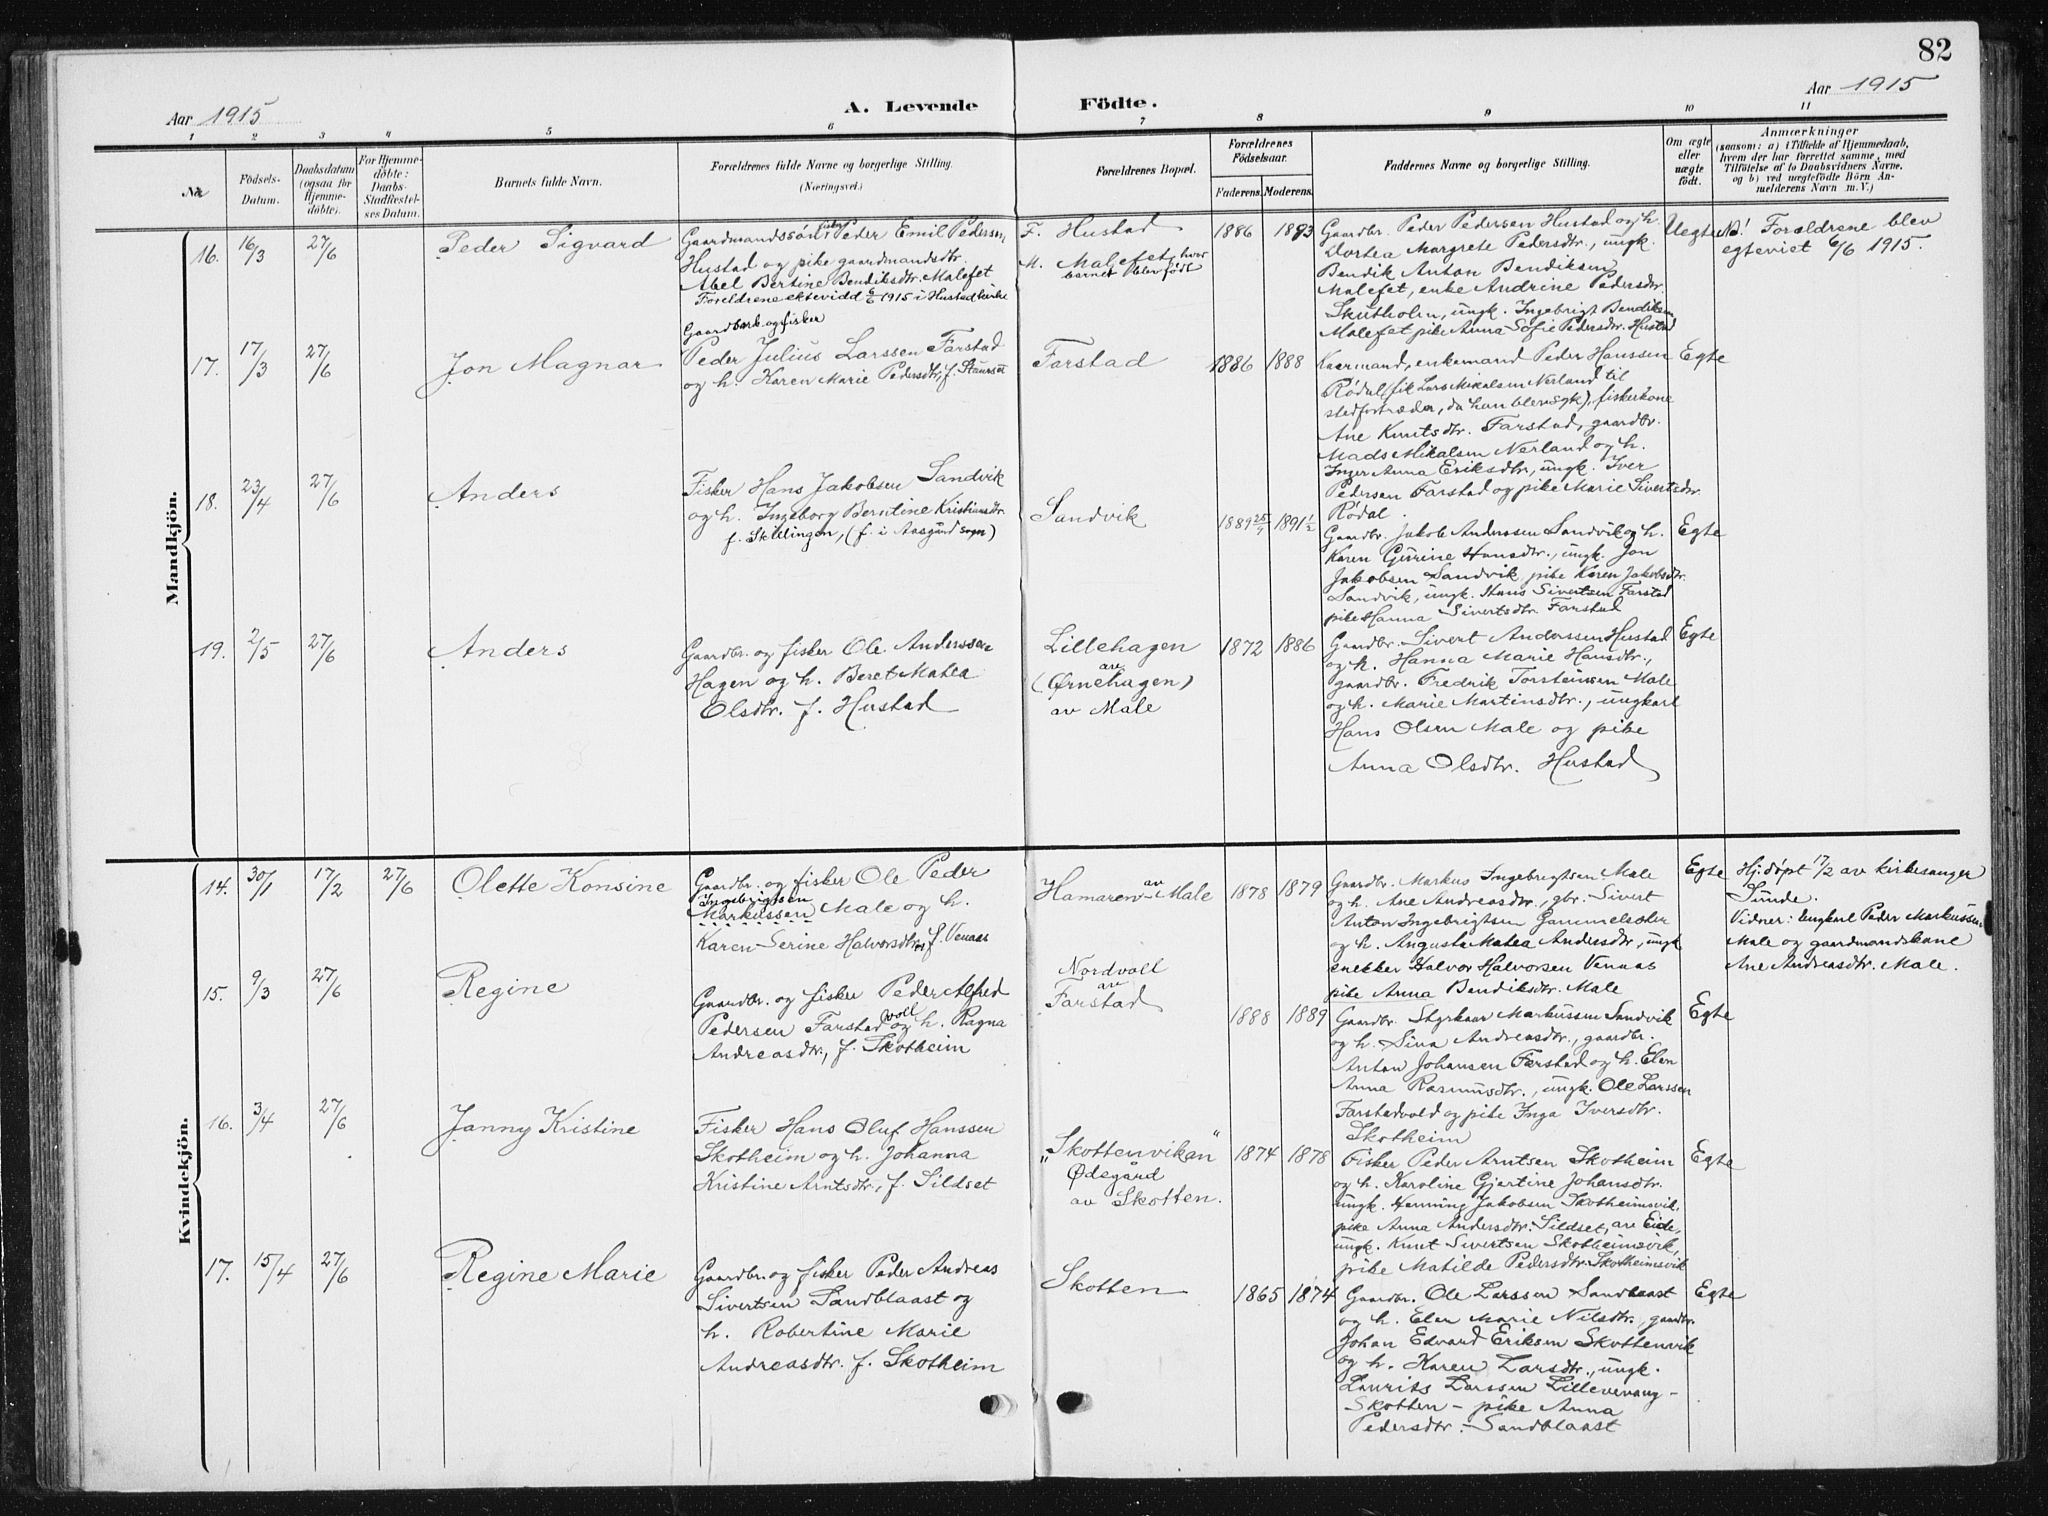 82
Aar 1915
A. Levende Födte.
Aar 1915
1 2 3 4 5 6 7 8 9 10 11
No.
Födsels-
Datum.
Daabsdatum
(ogsaa for
Hjemme-
döbte).
For Hjemme-
döbte:
Daabs-
Stadfestel-
ses Datum.
Barnets fulde Navn.
Forældrenes fulde Navne og borgerlige Stilling.
(Næringsvei.)
Forældrenes Bopæl.
Forældrenes
Födselsaar.
Faderens. Moderens.
Faddernes Navne og borgerlige Stilling.
Om ægte
eller
uægte
födt.
Anmærkninger
(saasom: a) i Tilfælde af Hjemmedaab,
hvem der har forrettet samme, med
Tilföielse af to Daabsvidners Navne.
og b) ved uægtefödte Börn An-
melderens Navn m. V.)
Mandkjön.
16. 16/3 27/6
Peder Sigvard
Gaardmandssön, fisker Peder Emil Pedersen
Hustad og pike gaardmandsdtr.
Abel Bertine Bendiksdtr. Malefet
Foreldrene ektevidd 6/6 1915 i Hustad kirke
F. Hustad
M. Malefet, hvor
barnet blev født
1886 1893
Gaardbr. Peder Pedersen Hustad og h.
Dortea Margrete Pedersdtr., ungk.
Bendik Anton Bendiksen
Malefet, enke Andrine Pedersdtr.
Skutholm, ungk. Ingebrigt Bendiksen
Malefet pike Anna Sofie Pedersdtr. Hustad
Uegte
N! Forældrene blev
egteviet 6/6 1915.
17. 17/3 27/6
Jon Magnar
Gaardbruk. og fisker
Peder Julius Larssen Farstad
og h. Karen Marie Pedersdtr, f. Staurset
Farstad
1886 1888
Kaarmand, enkemand Peder Hanssen
Rødal (fik Lars Mikalsen Nerland til
stedfortræder, da han blev sygk), fiskerkone
Ane Knutsdtr. Farstad, gaardbr.
Mads Mikalsen Nerland og h.
Inger Anna Eriksdtr., ungk. Iver
Pedersen Farstad og pike Marie Sivertsdtr.
Rödal.
Egte
18. 23/4 27/6
Anders
Fisker Hans Jakobsen Sandvik
og h. Ingeborg Berntine Kristiansdtr.
f. Skillingen, (f. i Aasgård sogn)
Sandvik
1889 25/9 1891 1/2
Gaardbr. Jakob Anderssen Sandvik og h.
Karen Gurine Hansdtr., ungk. Jon
Jakobsen Sandvik, pike Karen Jakobsdtr.
Sandvik, ungk. Hans Sivertsen Farstad
pike Hanna Sivertsdtr. Farstad
Egte
19. 2/5 27/6
Anders
Gaardbr. og fisker Ole Anderssen
Hagen og h. Beret Matea
Olsdtr. f. Hustad
Lillehagen
av
(Ørnehagen)
av Male
1872 1886
Gaardbr. Sivert Anderssen Hustad
og h. Hanna Marie Hansdtr.,
gaardbr. Fredrik Torsteinsen Male
og h. Marie Martinsdtr., ungkarl
Hans Olsen Male og pike
Anna Olsdtr. Hustad
Egte
Kvindekjön.
14. 30/1 17/2 27/6
Olette Konsine
Gaardbr. og fisker Ole Peder
Ingebrigtsen
Markussen Male og h.
Karen Serine Halvorsdtr. f. Venaas
Hamaren av Male
1878 1879
Gaardbr. Markus Ingebrigtsen Male
og h. Ane Andreasdtr., gbr. Sivert
Anton Ingebrigtsen Gammelseter
og h. Augusta Matea Andersdtr., ungk.
snekker Halvor Halvorsen Venaas
pike Anna Bendiksdtr. Male
Egte
Hj. døpt 17/2 av kirkesanger
Sunde.
Vidner: Ungkarl Peder Markussen
Male og gaardmandskone
Ane Andreasdtr. Male.
15. 9/3 27/6
Regine
Gaardbr. og fisker Peder Alfred
Pedersen Farstadvoll og h. Ragna
Andreasdtr., f. Skotheim
Nordvoll
av
Farstad
1888 1889
Gaardbr. Styrkaar Markussen Sandvik
og h. Sina Andreasdtr., gaardbr.
Anton Johansen Farstad og h. Elen
Anna Rasmusdtr., ungk. Ole Larssen
Farstadvold og pike Inga Iversdtr.
Skotheim
Egte
16. 3/4 27/6
Janny Kristine
Fisker Hans Oluf Hanssen
Skotheim og h. Johanna
Kristine Arntsdtr, f. Sildset
„Skottenvikan"
Ødegård
av Skotten.
1874 1878
Fisker Peder Arntsen Skotheim
og h. Karoline Gjertine Johansdtr.
ungk. Henning Jakobsen Skotheimsvik,
pike Anna Andersdtr. Sildset, av Eide,
ungk. Knut Sivertsen Skotheimsvik,
pike Matilde Pedersdtr. Skotheimsvik
Egte
17. 15/4 27/6
Regine Marie
Gaardbr. og fisker Peder Andreas
Sivertsen Sandblaast og
h. Robertine Marie
Andreasdtr. f. Skotheim
Skotten
1865 1874
Gaardbr. Ole Larssen Sandblaast
og h. Elen Marie Nilsdtr., gaardbr.
Johan Edvard Eriksen Skottenvik
og h. Karen Larsdtr., ungk.
Laurits Larssen Lillevevang -
Skotten - pike Anna
Pedersdtr. - Sandblaast
Egte